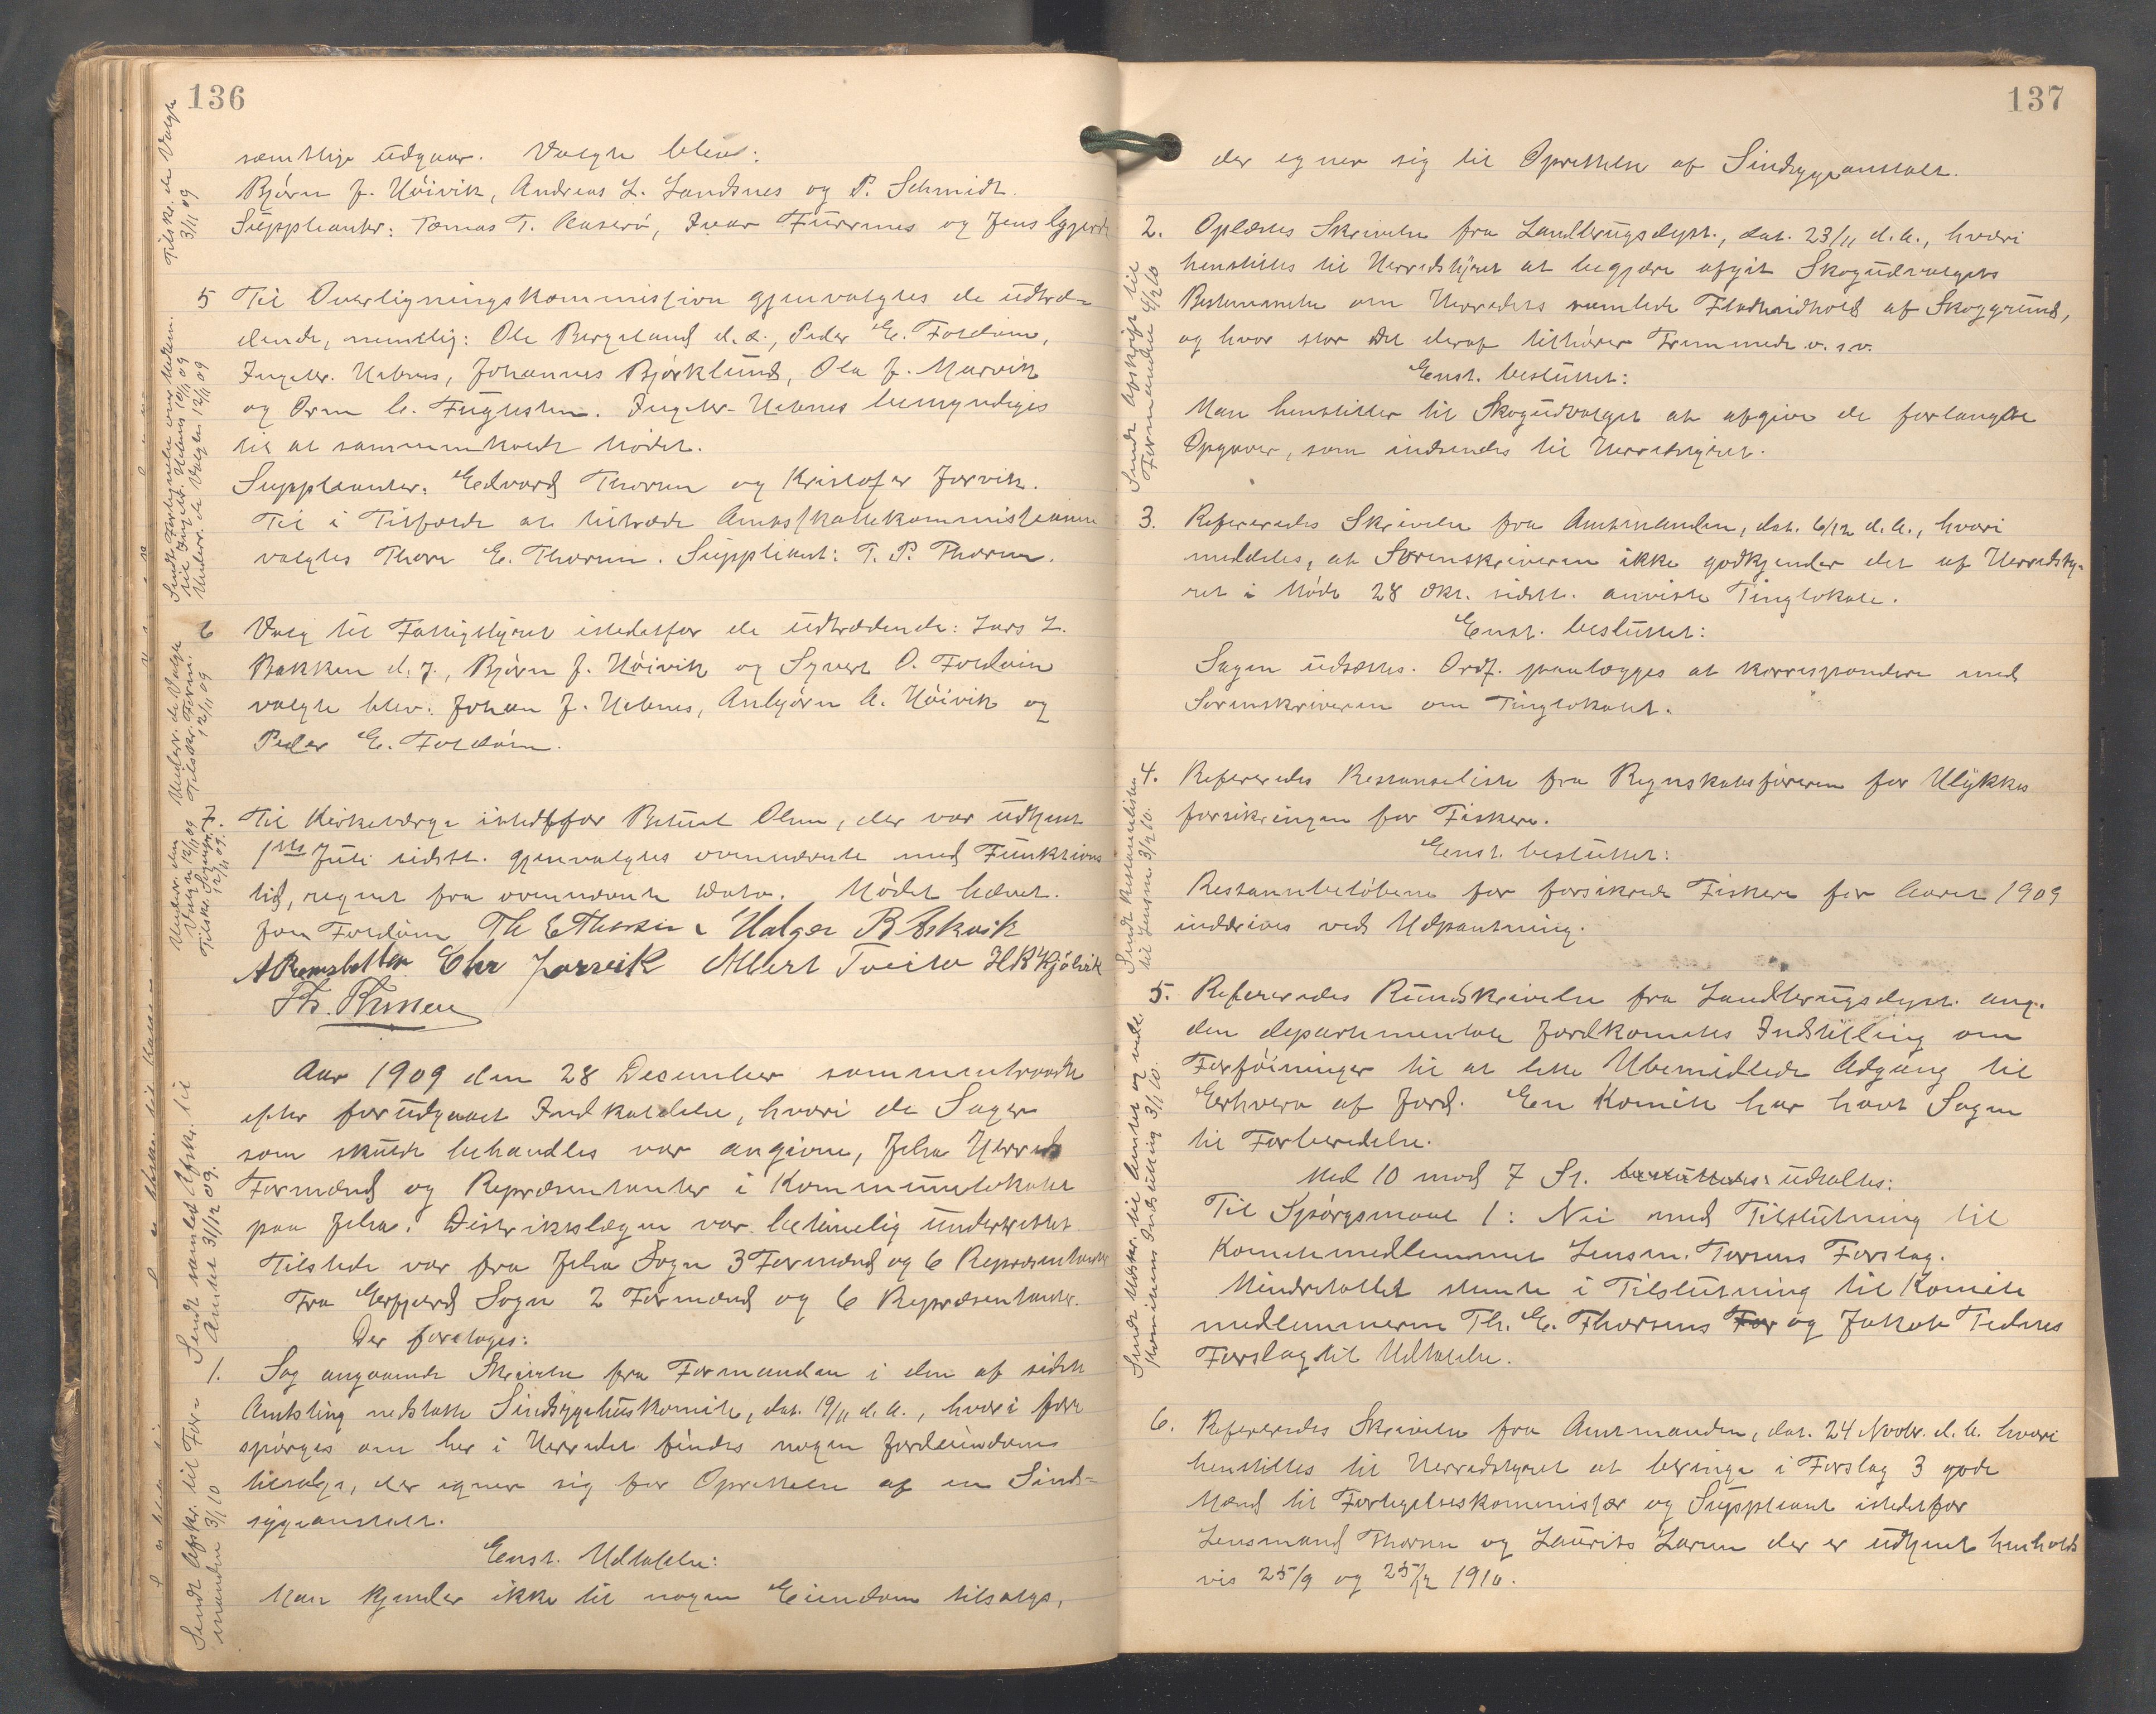 136
samtlige udgaar. Valgte blev:
Bjørn J. Høivik, Andreas L. Landsnes og P. Schmidt.
Suppleanter: Tomas T. Aaserø, Ivar Furrnes og Jens
5 Til Overligningskommission gjenvalgtes de udtræ-
dende, nemlig: Ole Bergeland d. æ., Peder E. Foldøen,
Ingebr. Hebnes, Johannes Bjørklund, Ola J. Marvik
og Orm A. Fuglesten. Ingebr. Hebnes bemyndiges
til at sammenkalde Mødet.
Suppleanter: Edvard Thorsen og Kristofer Jorvik.
Til i Tilfælde at tiltræde Amtsskattekommissionen
valgtes Thore E. Thorsen. Suppleant: T. P. Thorsen.
6 Valg til Fattigstyret istedetfor de udtrædende: Lars L.
Bakken d. y., Bjørn J. Høivik og Syvert O. Foldøen
valgte blev: Johan J. Hebnes, Anbjørn A. Høivik og
Peder E. Foldøen.
7. Til Kirkeværge istedetfor Betuel Olsen, der var udtjent
1ste Juli sidstl. gjenvalgtes ovennævnte med Funktions
tid, regnet fra ovennævnte Dato. Mødet hævet.
Jon Foldøen Th E Thorsen Halger B Eskvik
A Ramsbotten Chr Jorvik Albert Tveita H K Kjølvik
Th. Thorsen
Aar 1909 den 28 December sammentraadte
efter forudgaaet Indkaldelse, hvori de Sager
som skulde behandles var angivne, Jelsa Herreds
Formænd og Repræsentanter i Kommunelokalet
paa Jelsa. Distriktslægen var betimelig underrettet.
Tilstede var fra Jelsa Sogn 3 Formænd og 6 Repræsentanter
Fra Erfjord Sogn 2 Formænd og 6 Repræsentanter.
Der foretoges:
1. Sag angaaende Skrivelse fra Formanden i den af sidste
Amtsting nedsatte Sindsygehuskomite, dat. 19/11 d. A., hvori fore
spørges om her i Herredet findes nogen Jordeiendom
tilsalgs, der egner sig for Oprettelse af en Sind-
sygeanstalt.
Enst. Udtalelse:
Man kjender ikke til nogen Eiendom tilsalgs,
Tilskr. de Valgte
3/11 09
Sendt Fortegnelse over Medlem.
til Ingebr. Hebnes 10/11 09
Underr. de Valgte 12/11 09
Underr. de Valgte
Tilskr. Form.
12/11 09
Underr. den
Valgte 12/11 09
Tilskr. Sognepr.
12/11 09.
Sendt samlet Afskr. til
Amtet 31/12 09.
Sendt Afskr. til For-
manden 3/1 10
137
der egner sig til Oprettelse af Sindsygeanstalt.
2. Oplæstes Skrivelse fra Landbrugsdept., dat. 23/11 d. A., hvori
henstilles til Herredstyret at begjære afgit Skogudvalgets
Bestemmelse om Herredets samlede Fladeindhold af Skoggrund,
og hvor stor Del deraf tilhører Fremmede o. s. v.
Enst. besluttet:
Man henstiller til Skogudvalget at afgive de forlangte
Opgaver, som indsendes til Herredstyret.
3. Refereredes Skrivelse fra Amtmanden, dat. 6/12 d. A., hvori
meddeles, at Sorenskriveren ikke godkjender det af Herredsty-
ret i Møde 28 Okt. sidstl. anviste Tinglokale.
Enst. besluttet:
Sagen udsættes. Ordf. paalægges at korrespondere med
Sorenskriveren om Tinglokalet.
4. Refereredes Restanseliste fra Regnskabsføreren for Ulykkes
forsikringen for Fiskere.
Enst. besluttet:
Restansebeløbene for forsikrede Fiskere for Aaret 1909
inddrives ved Udpantning.
5. Refereredes Rundskrivelse fra Landbrugsdept. ang.
den departementale Jordkomites Indstilling om
Forføininger til at lette Ubemidlede Adgang til
Erhverv af Jord. En Komite har havt Sagen
til Forberedelse.
Med 10 mod 7 St. besluttedes: udtaltes:
Til Spørgsmaal 1: Nei med Tilslutning til
Komitemedlemmet Lensm. Torsens Forslag.
Mindretallet stemte i Tilslutning til Komite
medlemmerne Th. E. Thorsens For og Jakob Tednes
Forslag til Udtalelse.
6. Refereredes Skrivelse fra Amtmanden, dat. 24 Novbr. d. A. hvori
henstilles til Herredstyret at bringe i Forslag 3 gode
Mænd til Forligelseskommissær og Suppleant istedetfor
Lensmand Thorsen og Laurits Larsen der er udtjent henholds
vis 25/9 og 25/12 1910.
Sendt Afskrift til
Formanden 4/2 10
Sendt Restanselisten
til Lensm. 3/2 10.
Komiteens Indstilling 3/1 10.